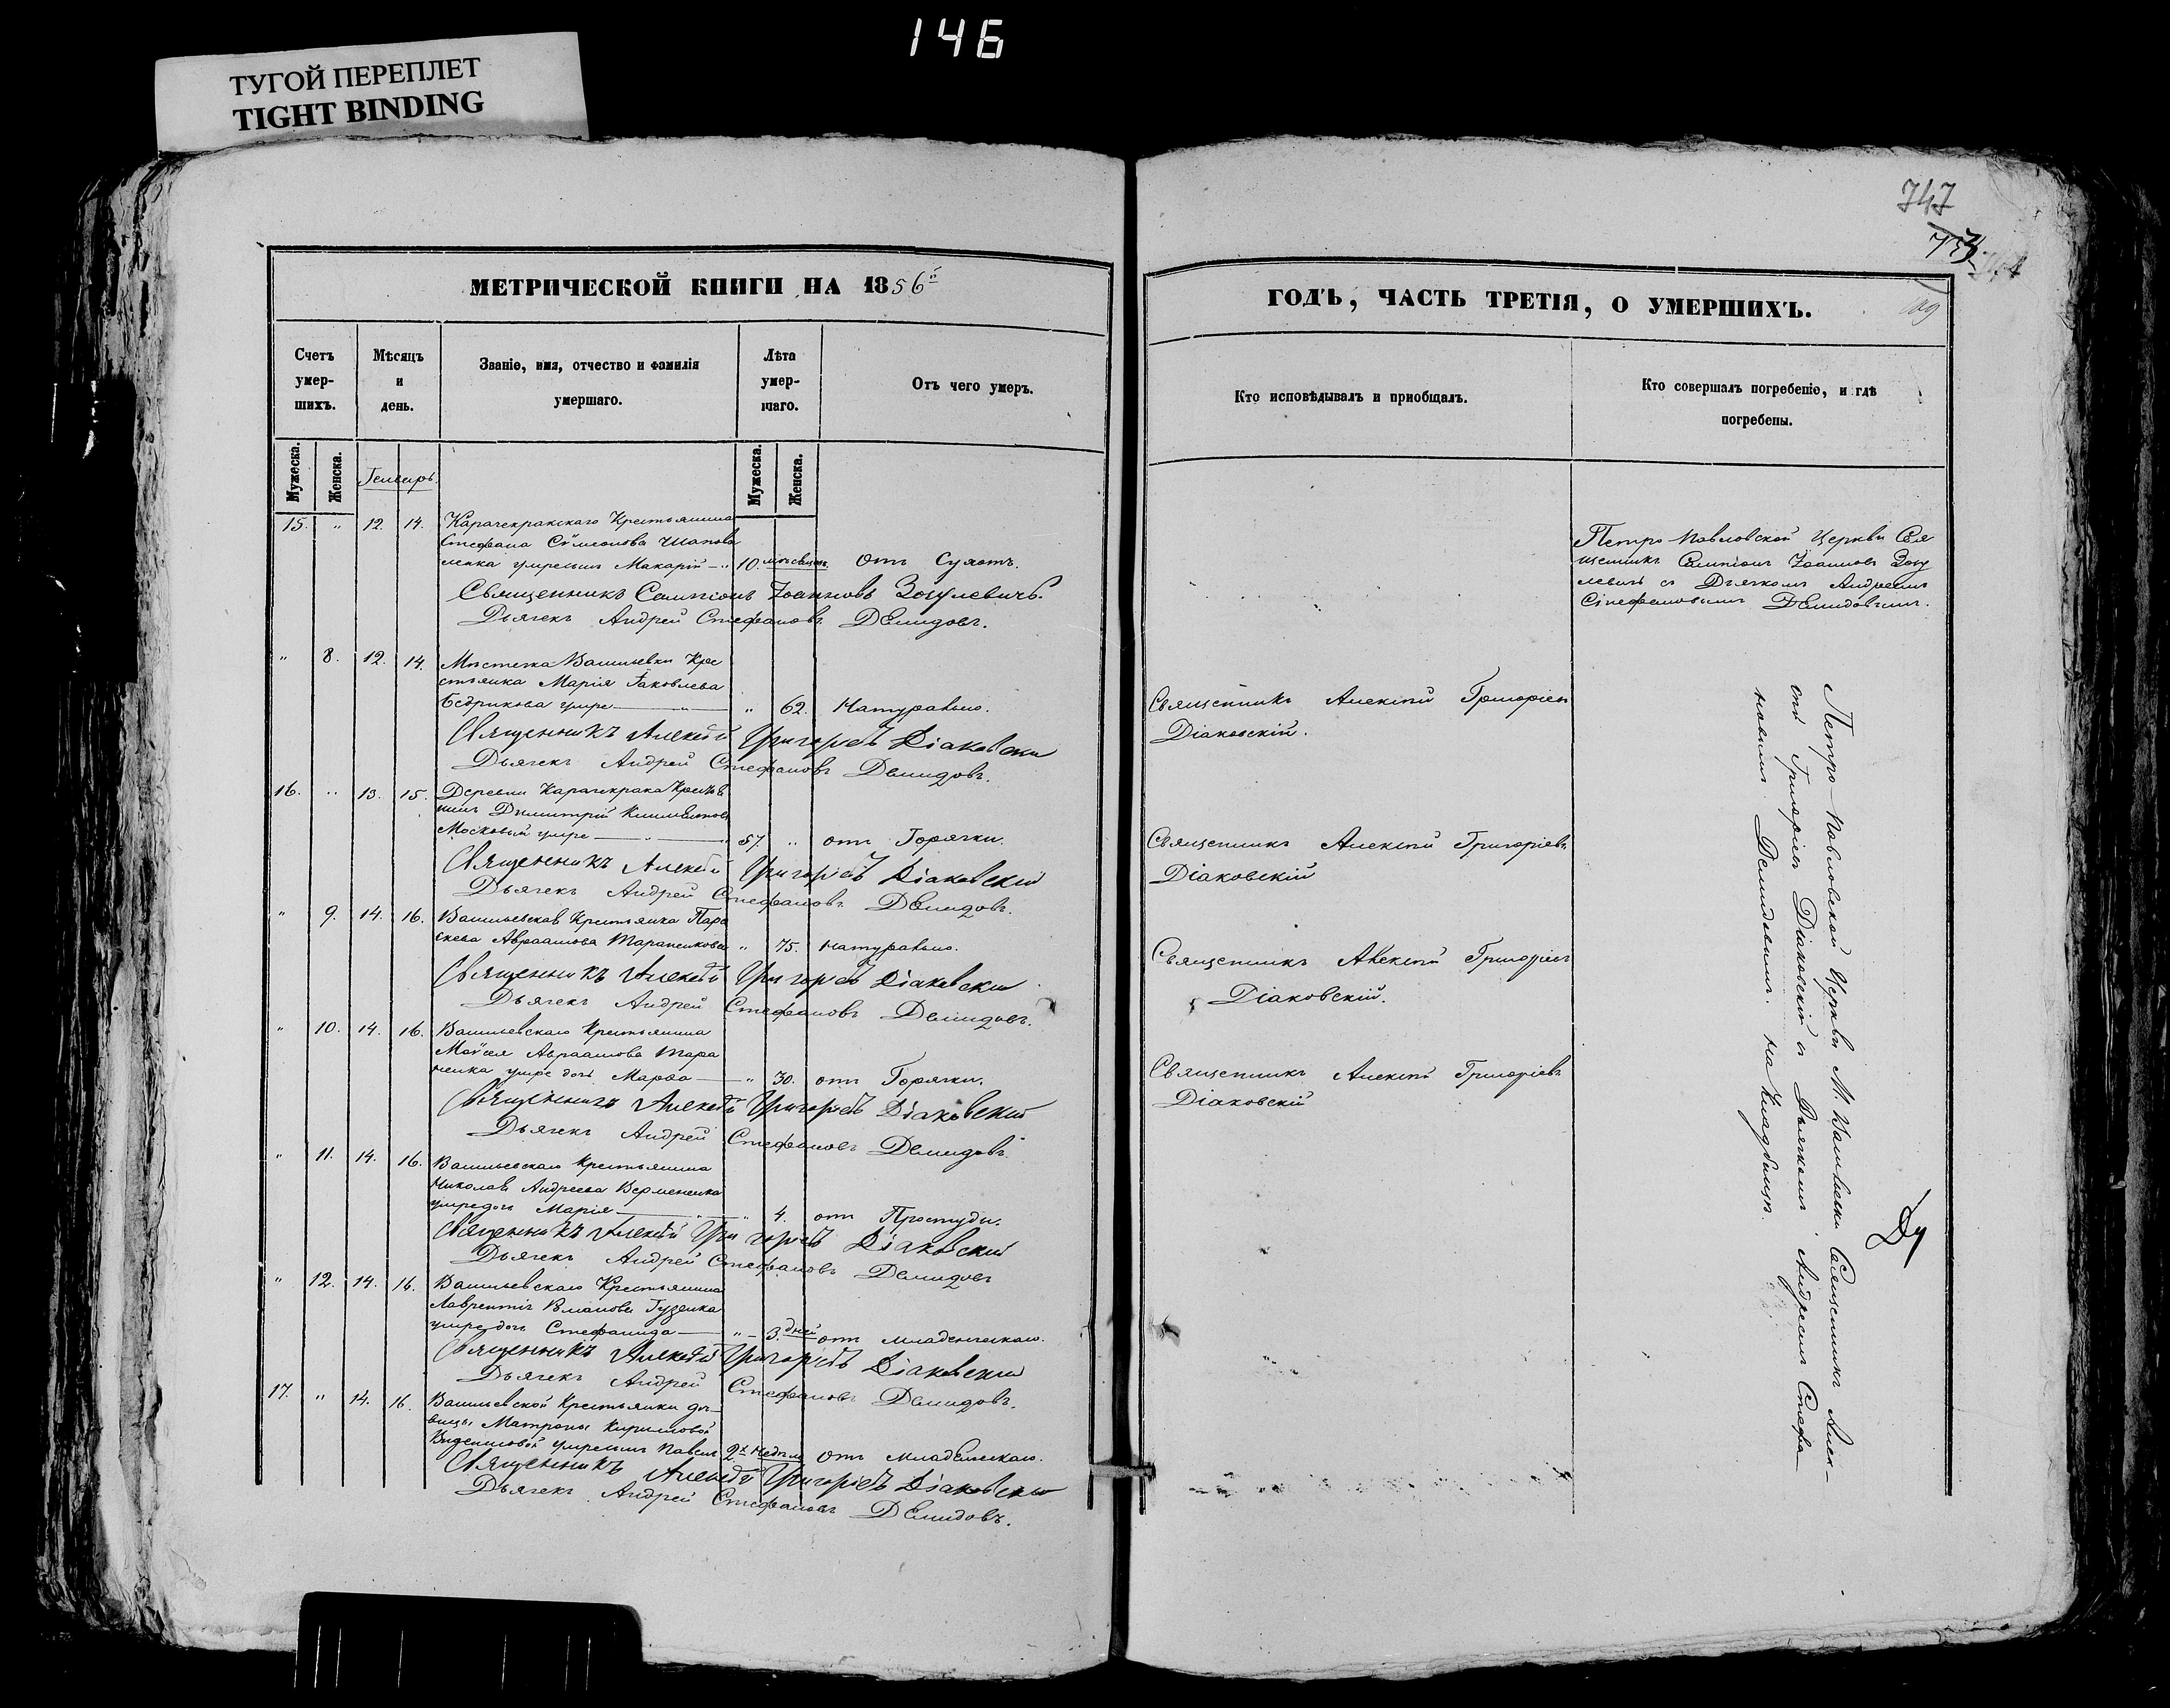 146
ТУГОЙ ПЕРЕПЛЕТ
TIGHT BINDING
747
МЕТРИЧЕСКОЙ КНИГИ НА 1856й
ГОДЪ, ЧАСТЬ ТРЕТІЯ, О УМЕРШИХЪ.
Счетъ умер- шихъ.
Мѣсяцъ и день.
Званіе, имя, отчество и фамилія умершаго.
Лѣта умер- шаго.
Отъ чего умеръ.
Кто исповѣдывалъ и пріобщалъ.
Кто совершалъ погребеніе, и гдѣ погребены.
Мужеска.
Женска.
Генварь.
Мужеска.
Женска.
15. " 12. 14. Карачекракскаго Крестьянина
Стефана Сѵмеонова Шапова
ленка умре сынъ Макарій — 10. мѣсяцовъ отъ Сухотъ.
Священникъ Сампсонъ Іоанновъ Зогулевичъ.
Дьячекъ Андрей Стефановъ Демидовъ.
Петро Павловской Церкви Свя
щенникъ Сампсонъ Іоанновъ Зогу
левичъ съ Дьячкомъ Андреемъ
Стефановымъ Демидовымъ.
" 8. 12. 14. Мѣстечка Васильевки Кре
стьянка Марія Іаковлева
Бедрикова умре — " 62. Натурально.
Священникъ Алексѣй Григорьевъ Діаковскій
Дьячекъ Андрей Стефановъ Демидовъ.
Священникъ Алексѣй Григоріевъ
Діаковскій.
16. " 13. 15. Деревни Карачекрака Крестья
нинъ Димитрій Климентовъ
Московый умре — 57. " отъ Горячки.
Священникъ Алексѣй Григорьевъ Діаковскій
Дьячекъ Андрей Стефановъ Демидовъ.
Священникъ Алексѣй Григоріевъ
Діаковскій
" 9. 14. 16. Васильевская Крестьянка Пара
скева Авраамова Тараненкова " 75. Натурально.
Священникъ Алексѣй Григорьевъ Діаковскій
Дьячекъ Андрей Стефановъ Демидовъ.
Священникъ Алексѣй Григоріевъ
Діаковскій.
" 10. 14. 16. Васильевскаго Крестьянина
Моѵсея Авраамова Тара
ненка умре дочь Марѳа — " 30. отъ Горячки.
Священникъ Алексѣй Григорьевъ Діаковскій
Дьячекъ Андрей Стефановъ Демидовъ.
Священникъ Алексѣй Григоріевъ
Діаковскій
" 11. 14. 16. Васильевскаго Крестьянина
Николая Андреева Вермененка
умре дочь Марія — " 4. отъ Простуды.
Священникъ Алексѣй Григорьевъ Діаковскій
Дьячекъ Андрей Стефановъ Демидовъ
" 12. 14. 16. Васильевскаго Крестьянина
Лаврентія Гузенка
умре дочь Стефанида — " 3. дней отъ младенческаго.
Священникъ Алексѣй Григорьевъ Діаковскій
Дьячекъ Андрей Стефановъ Демидовъ.
17. " 14. 16. Васильевской Крестьянки дѣ-
вицы Матроны Кирилловой
умре сынъ Павелъ 2х недель отъ младенческаго.
Священникъ Алексѣй Григорьевъ Діаковскій
Дьячекъ Андрей Стефановъ Демидовъ.
Петро-Павловской Церкви М. Васильевки Священникъ Алек-
сѣй Григоріевъ Діаковскій съ Дьячкомъ Андреемъ Стефа-
новымъ Демидовымъ. на Кладбищѣ.